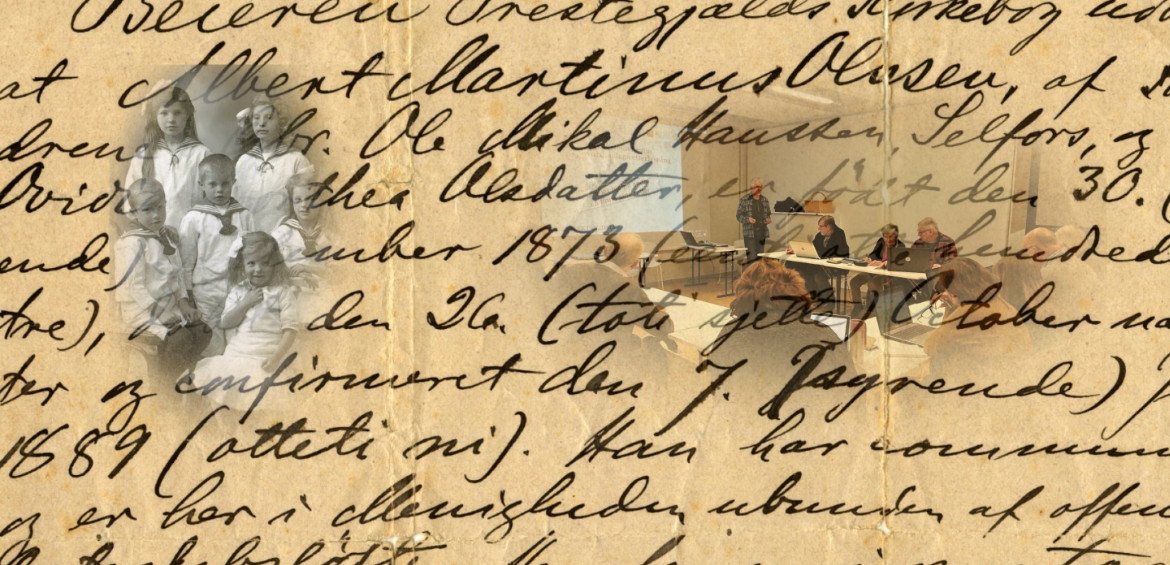 Beieren Prestegjælds Kirkebog
at Albert Martinus Olusen, af
dren br. Ole Mikal Hanssen, Selfors, og
thea Olsdatter, er født den 30.
ende) mber 1873 ( hundred
tre), den 26. (toti sjette) October
ter og confirmeret den 7. (syvende)
1889 (otteti ni). Han har commun
og er her i Menigheden ubunden af offen